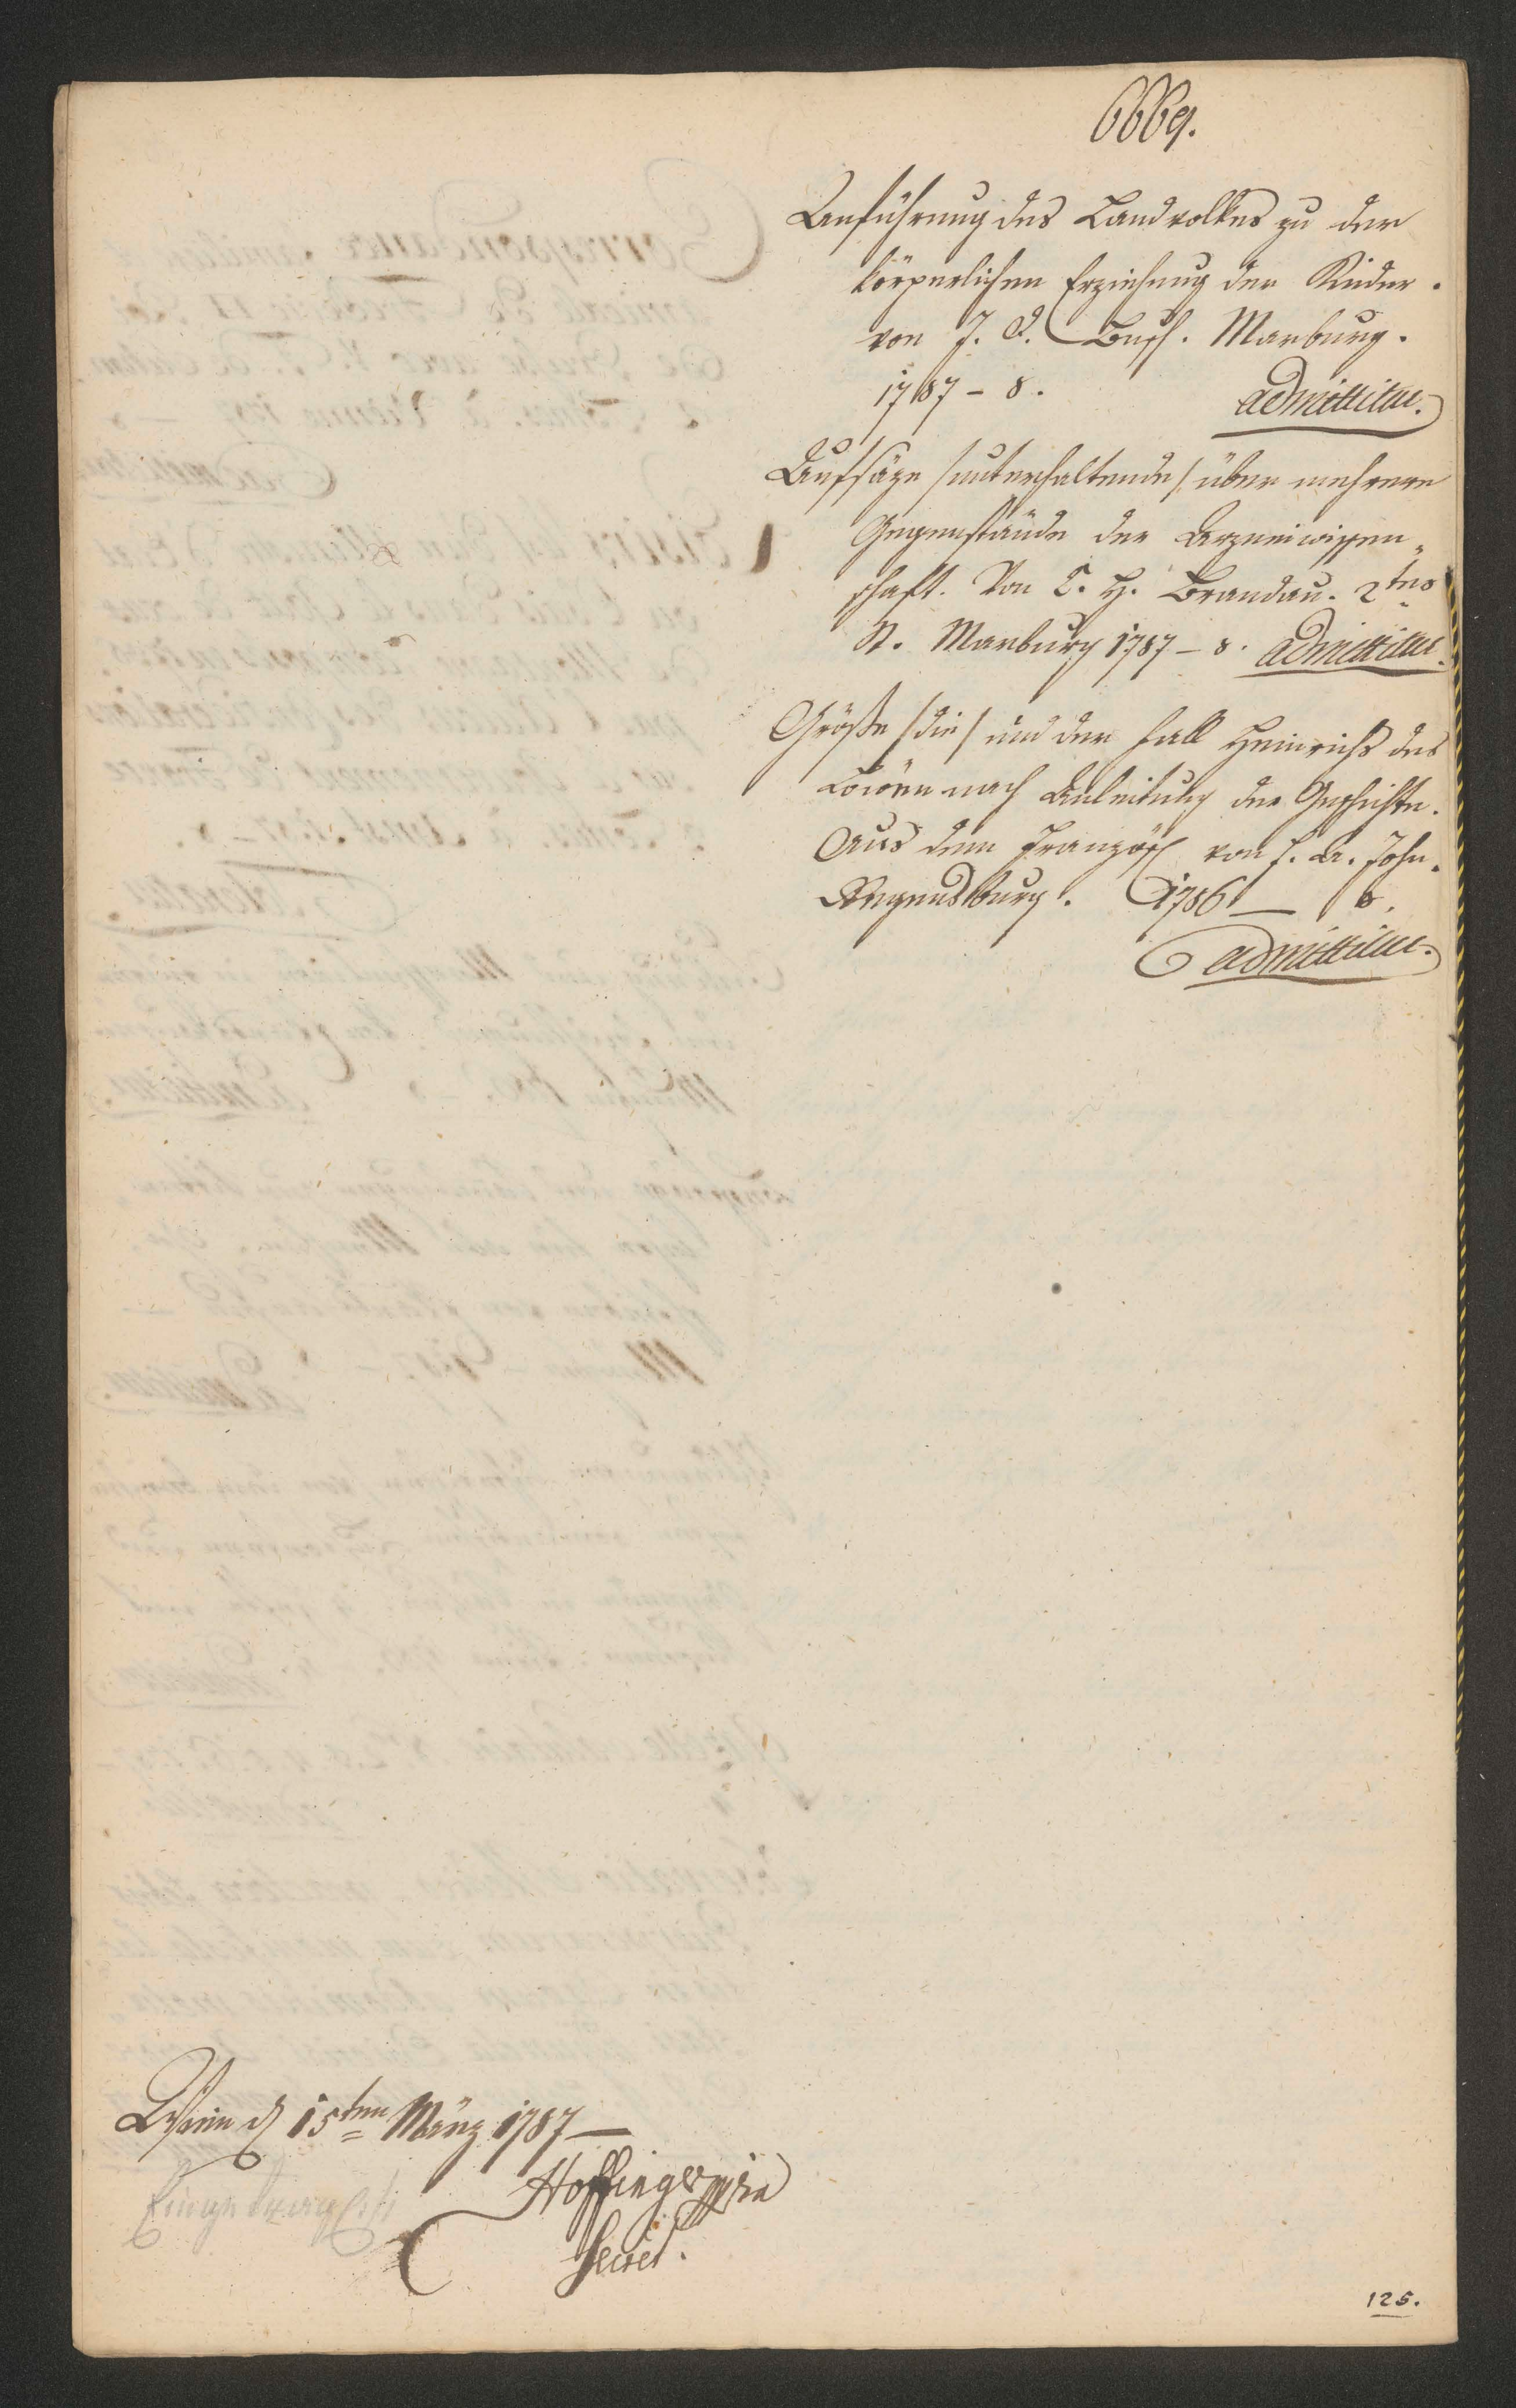 6669.
Anführung des Landvolkes zu der
körperlichen Erziehung der Kinder.
von J. D. Busch. Marburg.
1787 – 8.
admittitur.
Aufsäze /unterhaltende/ über mehrere
Gegenstände der Arzneiwissen„
schaft. Von C. H. Brandau. 2tes
St. Marburg 1787 – 8. admittitur.
Größe /die/ und der Fall Heinrichs des
Löwen nach Anleitung der Geschichte.
Aus dem Französ von J. A. John.
Regensburg. 1786 — 8.
admittitur.
Wien d 15ten März 1787 —
Hoffinger mpria
Secret.
125.